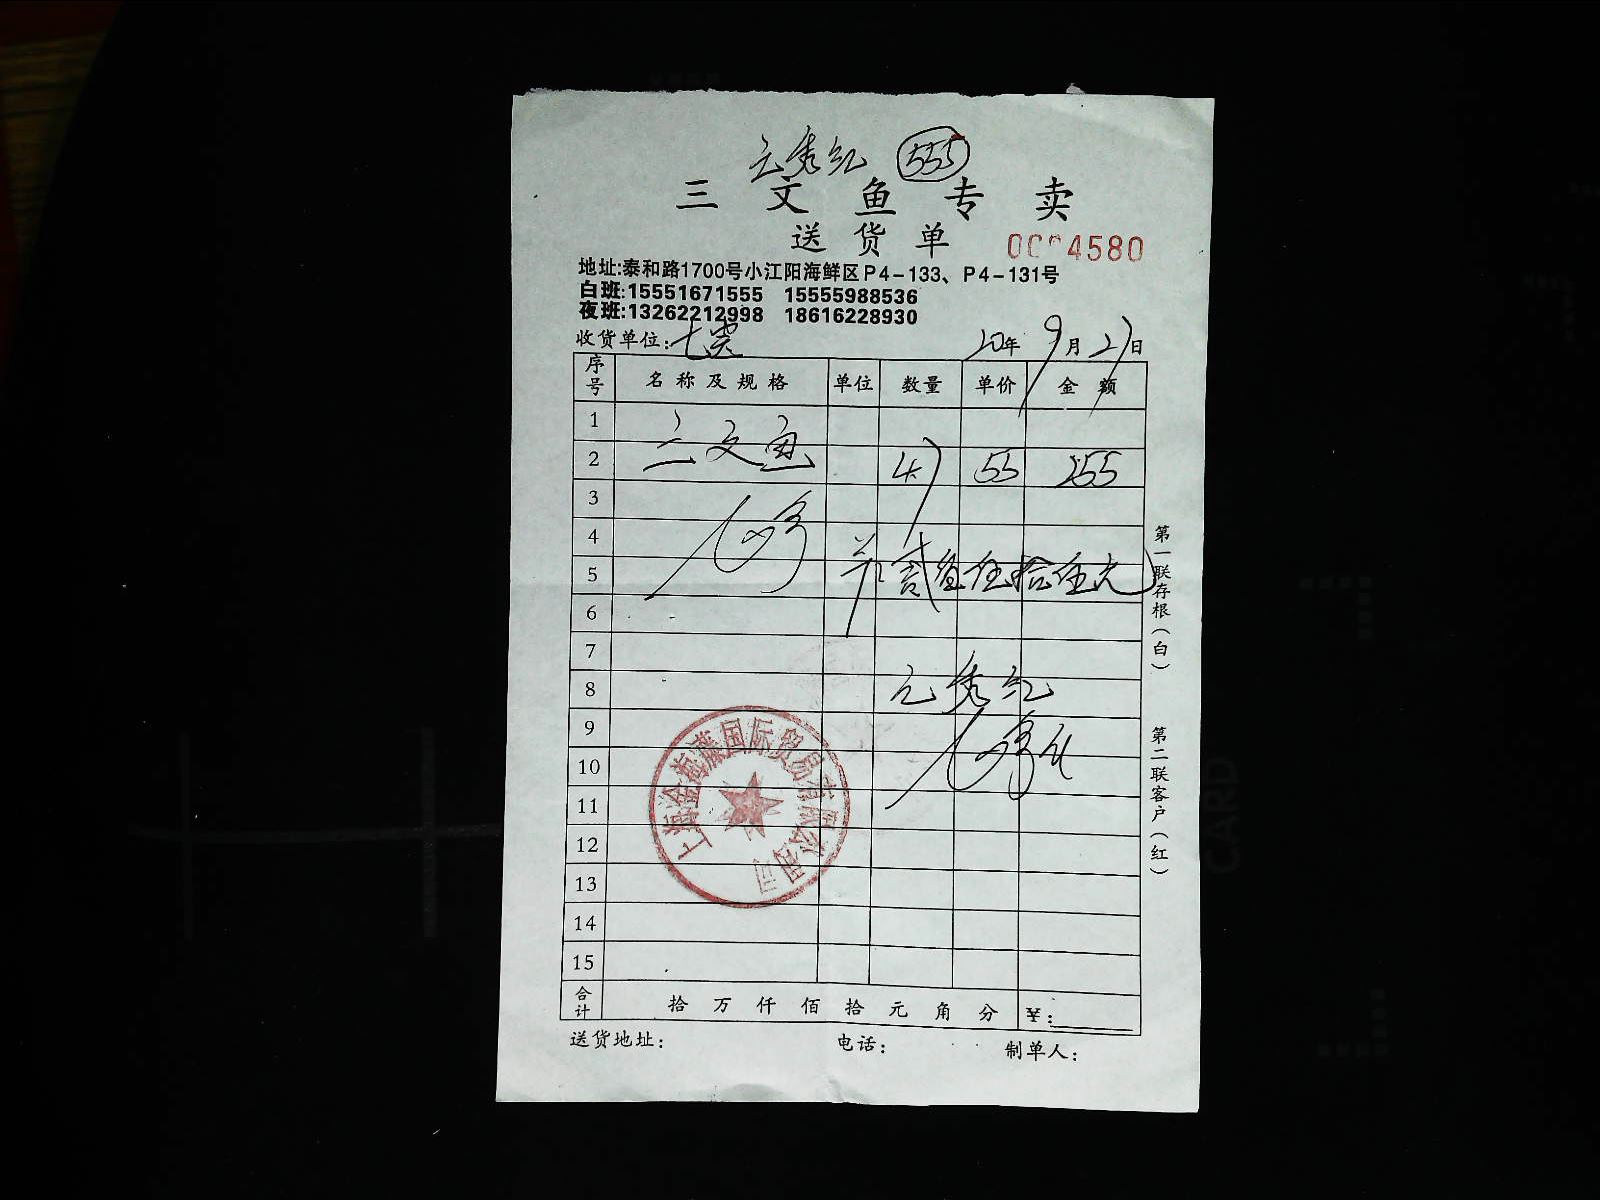 元秀红 555
三文鱼专卖
送货单
地址:泰和路1700号小江阳海鲜区P4-133、P4-131号
白班:15551671555 15555988536
夜班:13262212998 18616228930
收货单位: 20年9月27日
序号 名称及规格 单位 数量 单价 金额
1
2 三文鱼 47 55 255
3
4
5 贰佰伍拾伍元
6
7
8 元秀红
9
10
11
12
13
14
15
合计 拾 万 仟 佰 拾 元 角 分 ¥:
送货地址: 电话: 制单人:
第一联存根(白)
第二联客户(红)
上海金海藤国际贸易有限公司